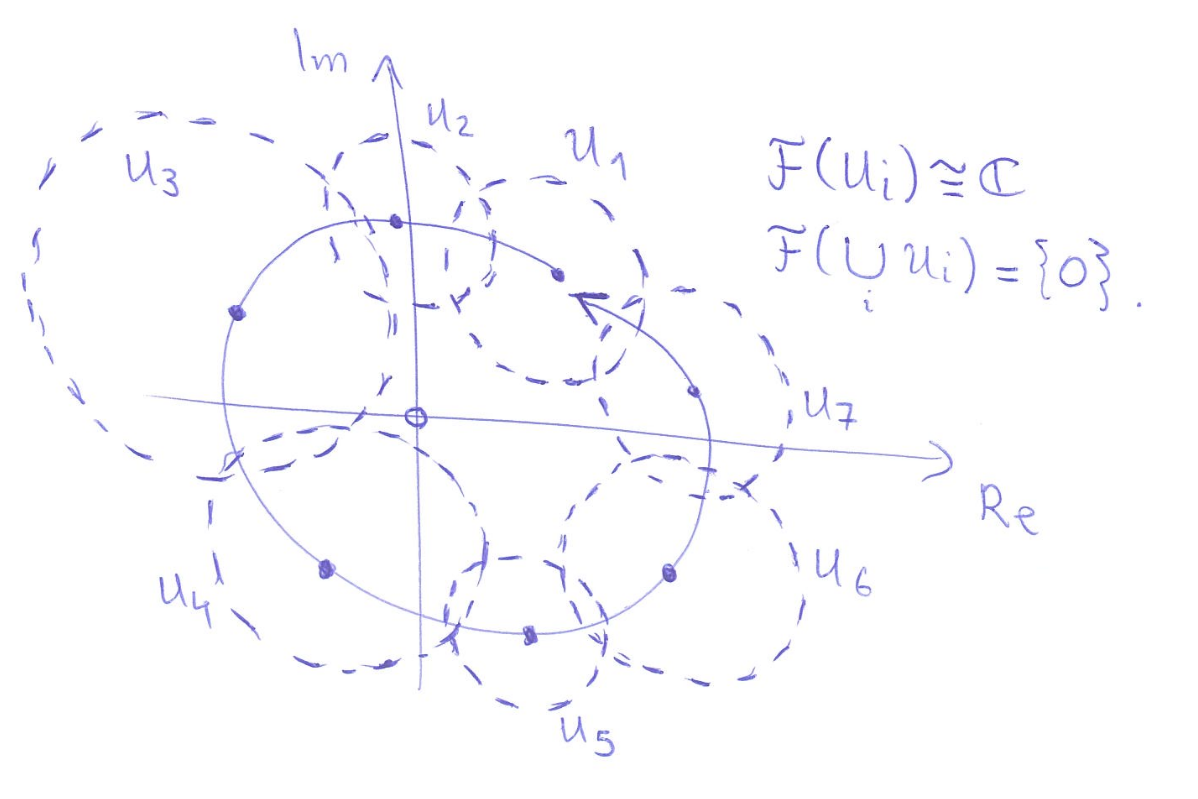 Im
U₂
U₁
U₃
F(Uᵢ) ≅ ℂ
F(⋃ᵢ Uᵢ) = {0}.
U₇
Re
U₆
U₄
U₅